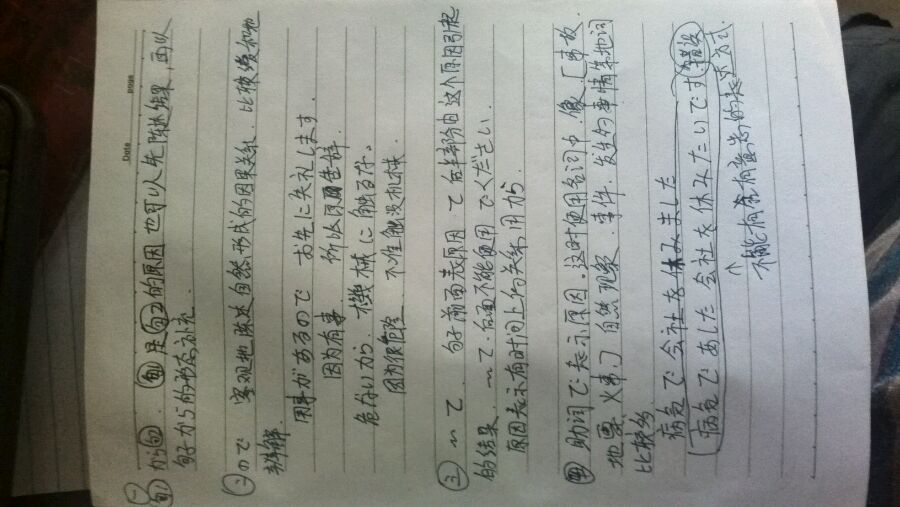 Date page
㊀ 句₁ から 句₂. 句₁是句₂的原因 也可以先陈述结果, 再以
句子から的形式补充
㊁ ので 客观地陈述自然形式的因果关系. 比较缓和地
辩解.
用事があるので お先に失礼します.
因为有事 所以告辞.
危ないから. 機械に触るな.
因为很危险 不准触没机械.
㊂ ~て. 句子前面表原因 て 后半部分由这个原因引起
的结果. ~て.后面不能使用 でください
原因表示有时间上的关系用から.
㊃ 助词で表示原因. 这时使用名词中.像[事故.
地震 火事.] 自然现象. 事件. 发生的事情等地词
比较多
病気で会社を休みました
[病気であした会社を休みたいです (错误)
↑
不能有含有意志的表示方式.